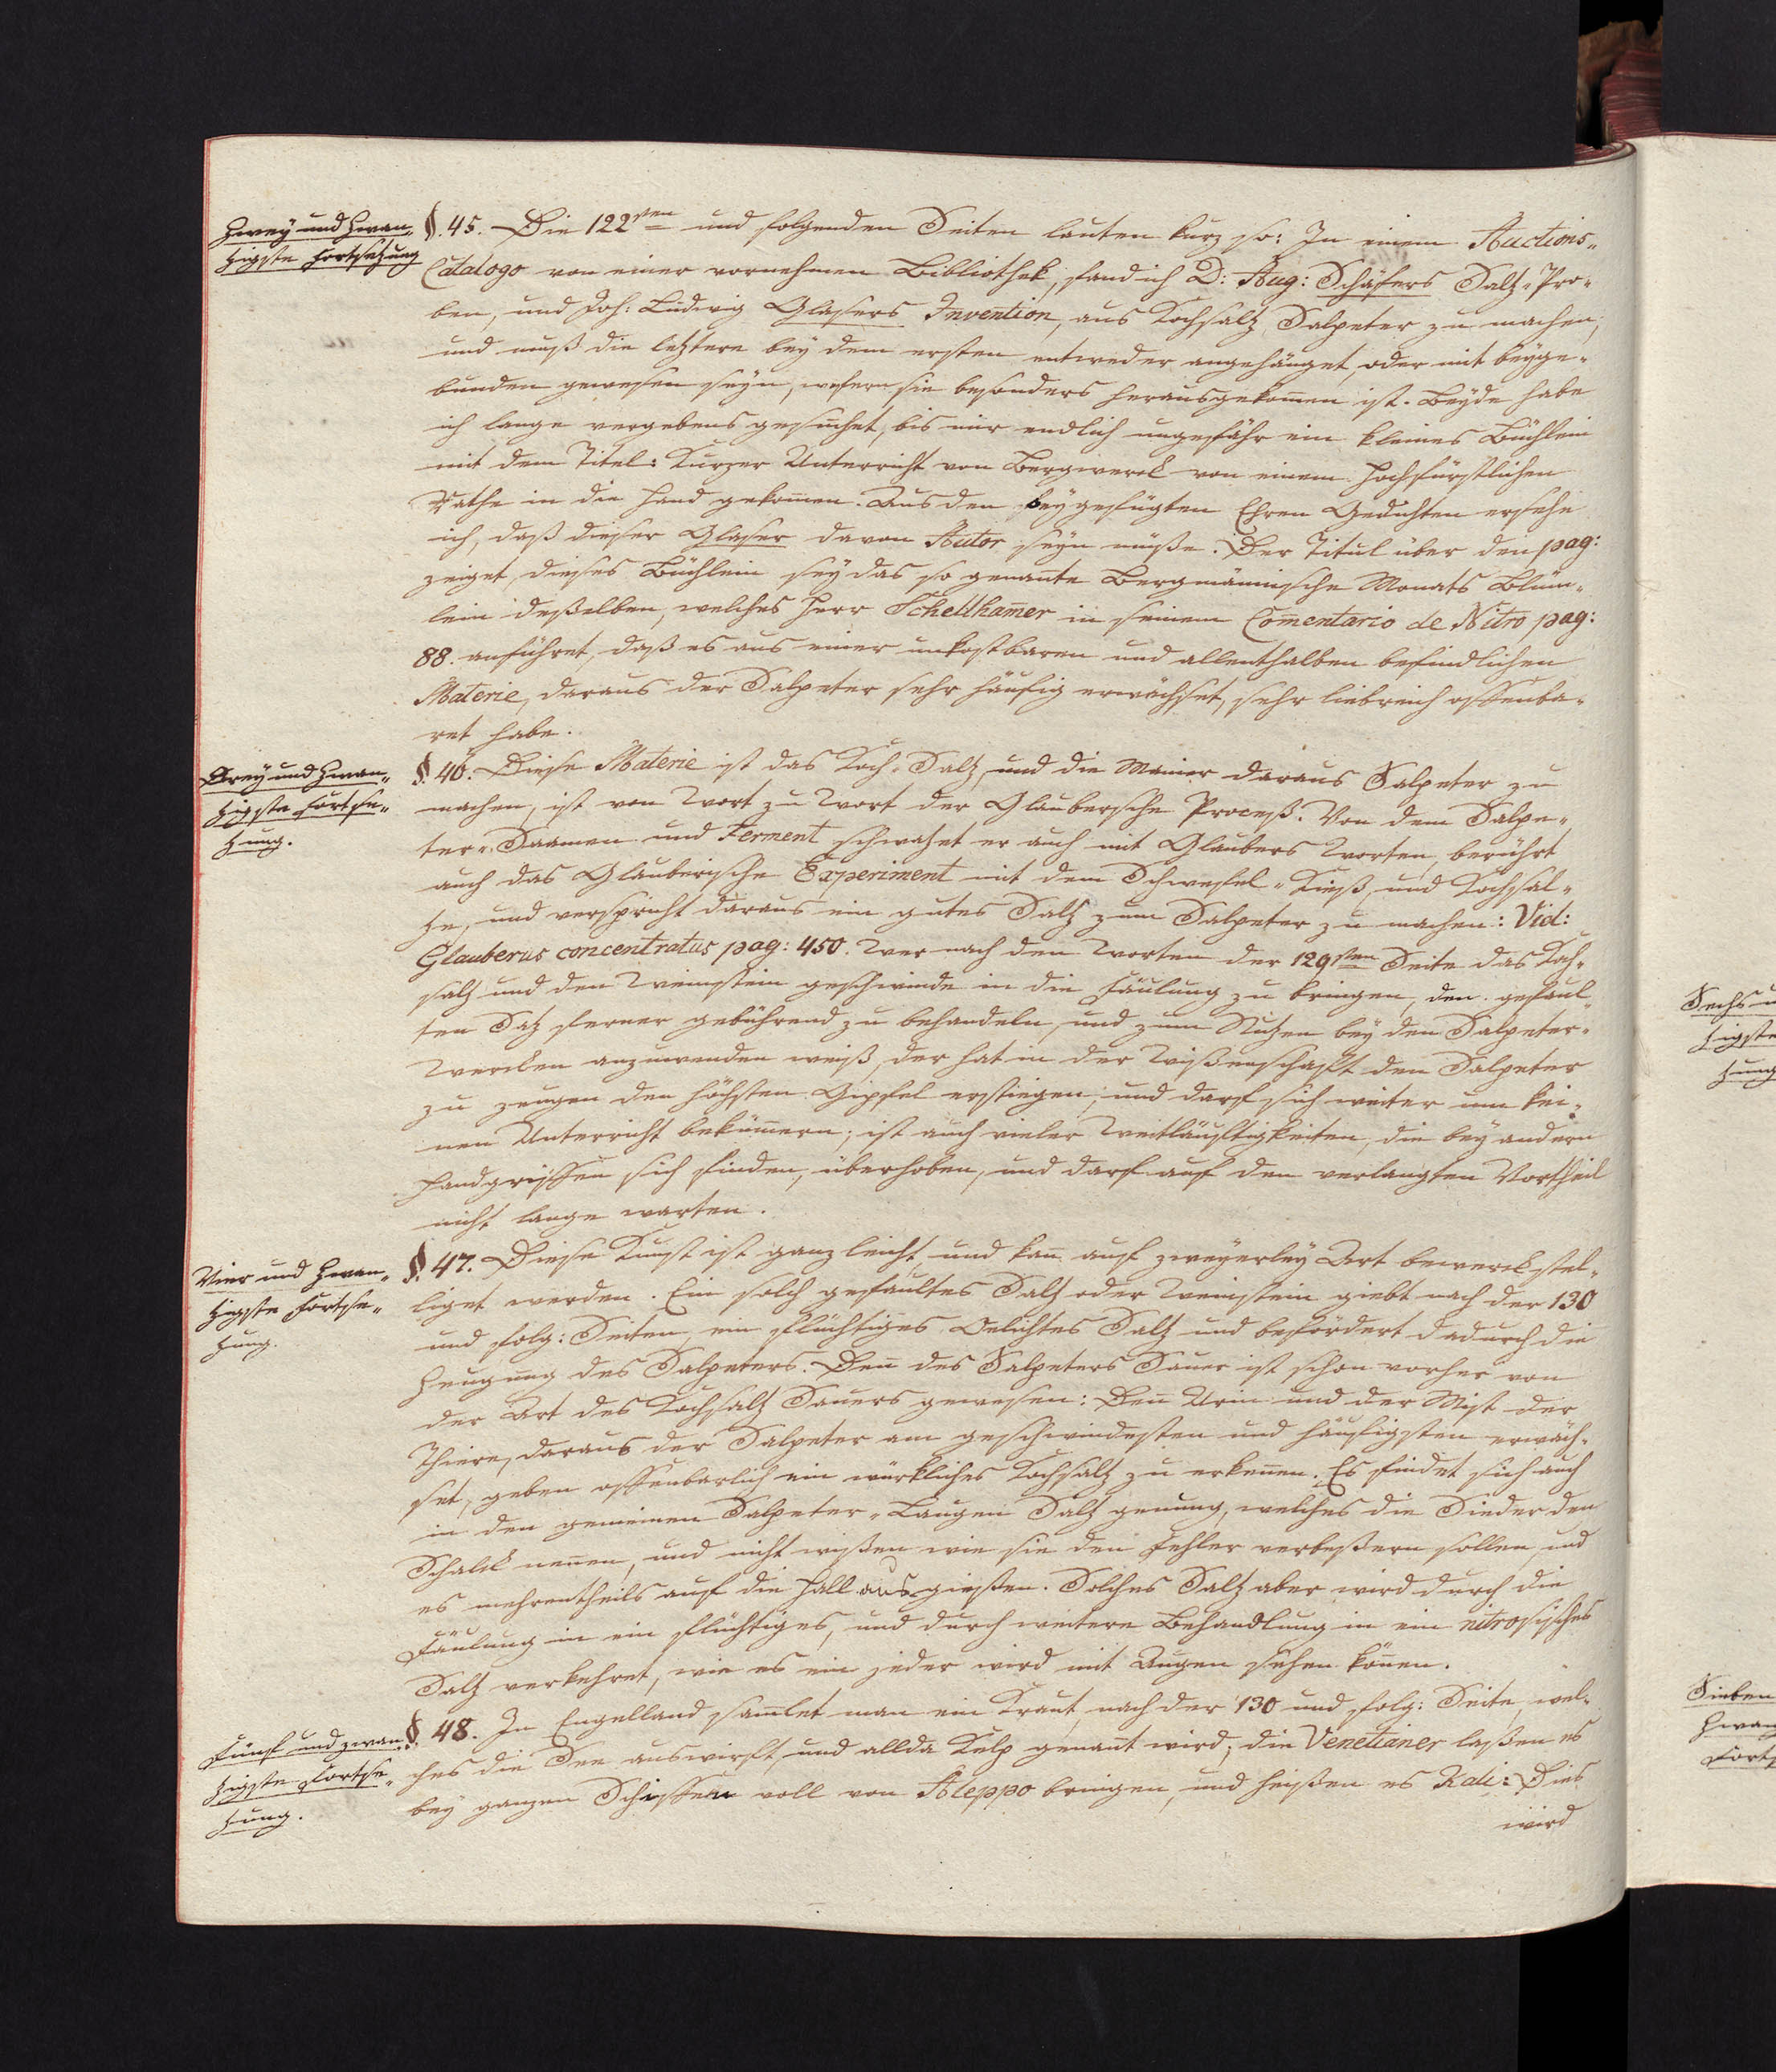 Zwey und Zwan-
zigste Fortsetzung
§. 45. Die 122sten und folgenden Seiten lauten kurz so: In einem Auctions-
Catalogo von einer vornehmen Bibliothek, fand ich D: Aug: Schäfers Saltz-Pro-
ben, und Joh: Ludwig Glasers Invention, aus Kochsaltz Salpeter zu machen,
und muß die letztere bey dem ersten entweder angehänget, oder mit beyge-
bunden gewesen seyn, wofern sie besonders herausgekom̄en ist. Beyde habe
ich lange vergebens gesuchet, bis mir endlich ungefähr ein kleines Büchlein
mit dem Titel: Kurzer Unterricht von Bergwerck von einem Hochfürstlichen
Rathe in die Hand gekom̄en. Aus den beygefügten Ehren Gedichten ersehe
ich, daß dieser Glaser davon Autor seyn müße. Der Titul über den pag:
zeiget, dieses Büchlein sey das so genan̄te Bergmännische Monats Blüm-
lein deßelben, welches Herr Schellham̄er in seinem Com̄entario de Nitro pag:
88. anführet, daß es aus einer unkostbaren und allenthalben befindlichen
Materie, daraus der Salpeter sehr häufig erwächset, sehr liebreich offenba-
ret habe.
Drey und Zwan-
zigste Fortse-
tzung.
§. 46. Diese Materie ist das Koch-Saltz, und die Manier daraus Salpeter zu
machen, ist von Wort zu Wort der Glaubersche Proceß. Von dem Salpe-
ter-Saamen und Ferment schwatzet er auch mit Glaubers Worten, berührt
auch das Glauberische Experiment mit dem Schwefel-Kieß, und Kochsal-
tze, und verspricht daraus ein gutes Saltz zum Salpeter zu machen: Vid:
Glauberus concentratus pag: 450. Wer nach den Worten der 129sten Seite das Koch-
saltz und den Weinstein geschwinde in die Fäulung zu bringen, den gefaul-
ten Satz ferner gebührend zu behandeln, und zum Nutzen bey den Salpeter-
Wercken anzuwenden weiß, der hat in der Wißenschafft den Salpeter
zu zeugen den höchsten Gipfel erstiegen, und darf sich weiter um kei-
nen Unterricht beküm̄ern; ist auch vieler Weitläuftigkeiten, die bey andern
Handgriffen sich finden, überhoben, und darf auf den verlangten Vortheil
nicht lange warten.
Vier und Zwan-
zigste Fortse-
tzung.
§. 47. Diese Kunst ist ganz leicht, und kan̄ auf zweyerley Art bewerckstel-
liget werden. Ein solch gefaultes Saltz oder Weinstein giebt nach der 130
und folg: Seiten, ein flüchtiges Oelichtes Saltz und befördert dadurch die
Zeugung des Salpeters. Den̄ des Salpeters Sauer ist schon vorher von
der Art des Kochsaltz Sauers gewesen: Den̄ Urin und der Mist der
Thiere, daraus der Salpeter am geschwindesten und häufigsten erwäch-
set, geben offenbarlich ein würkliches Kochsaltz zu erken̄en. Es findet sich auch
in den gemeinen Salpeter-Laugen Saltz genung, welches die Sieder den
Schalck nen̄en, und nicht wißen wie sie den Fehler verbeßern sollen, und
es mehrentheils auf die Hall. ausgießen. Solches Saltz aber wird durch die
Fäulung in ein flüchtiges, und durch weitere Behandlung in ein nitrosisches
Saltz verkehret, wie es ein jeder wird mit Augen sehen kön̄en.
Fünf und zwan-
zigste Fortse-
tzung.
§. 48. In Engelland sam̄let man ein Kraut, nach der 130 und folg: Seite, wel-
ches die See auswirft, und allda Kelp genan̄t wird; die Venetianer laßen es
bey ganzen Schiffen voll von Aleppo bringen, und heißen es Kali: Dies
wird
Sechs u
zigste
tzung
Sieben
Zwan
Forts